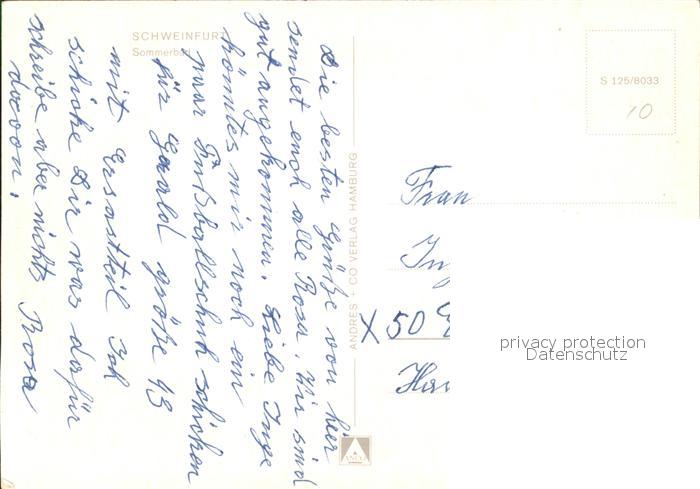 SCHWEINFURT
Sommerbad
Die besten Grüße von hier
sendet euch alle Rosa. Wir sind
gut angekommen. Liebe Inge
könntes mir noch ein
paar Fußballschuh schicken
für Gerald größe 43
mit Ersatzteil Ich
schicke Dir was dafür
schreibe aber nichts Rosa
davon.
ANDRES + CO VERLAG HAMBURG
S 125/8033
10
Frau
In
X 50
Ha
privacy protection
Datenschutz